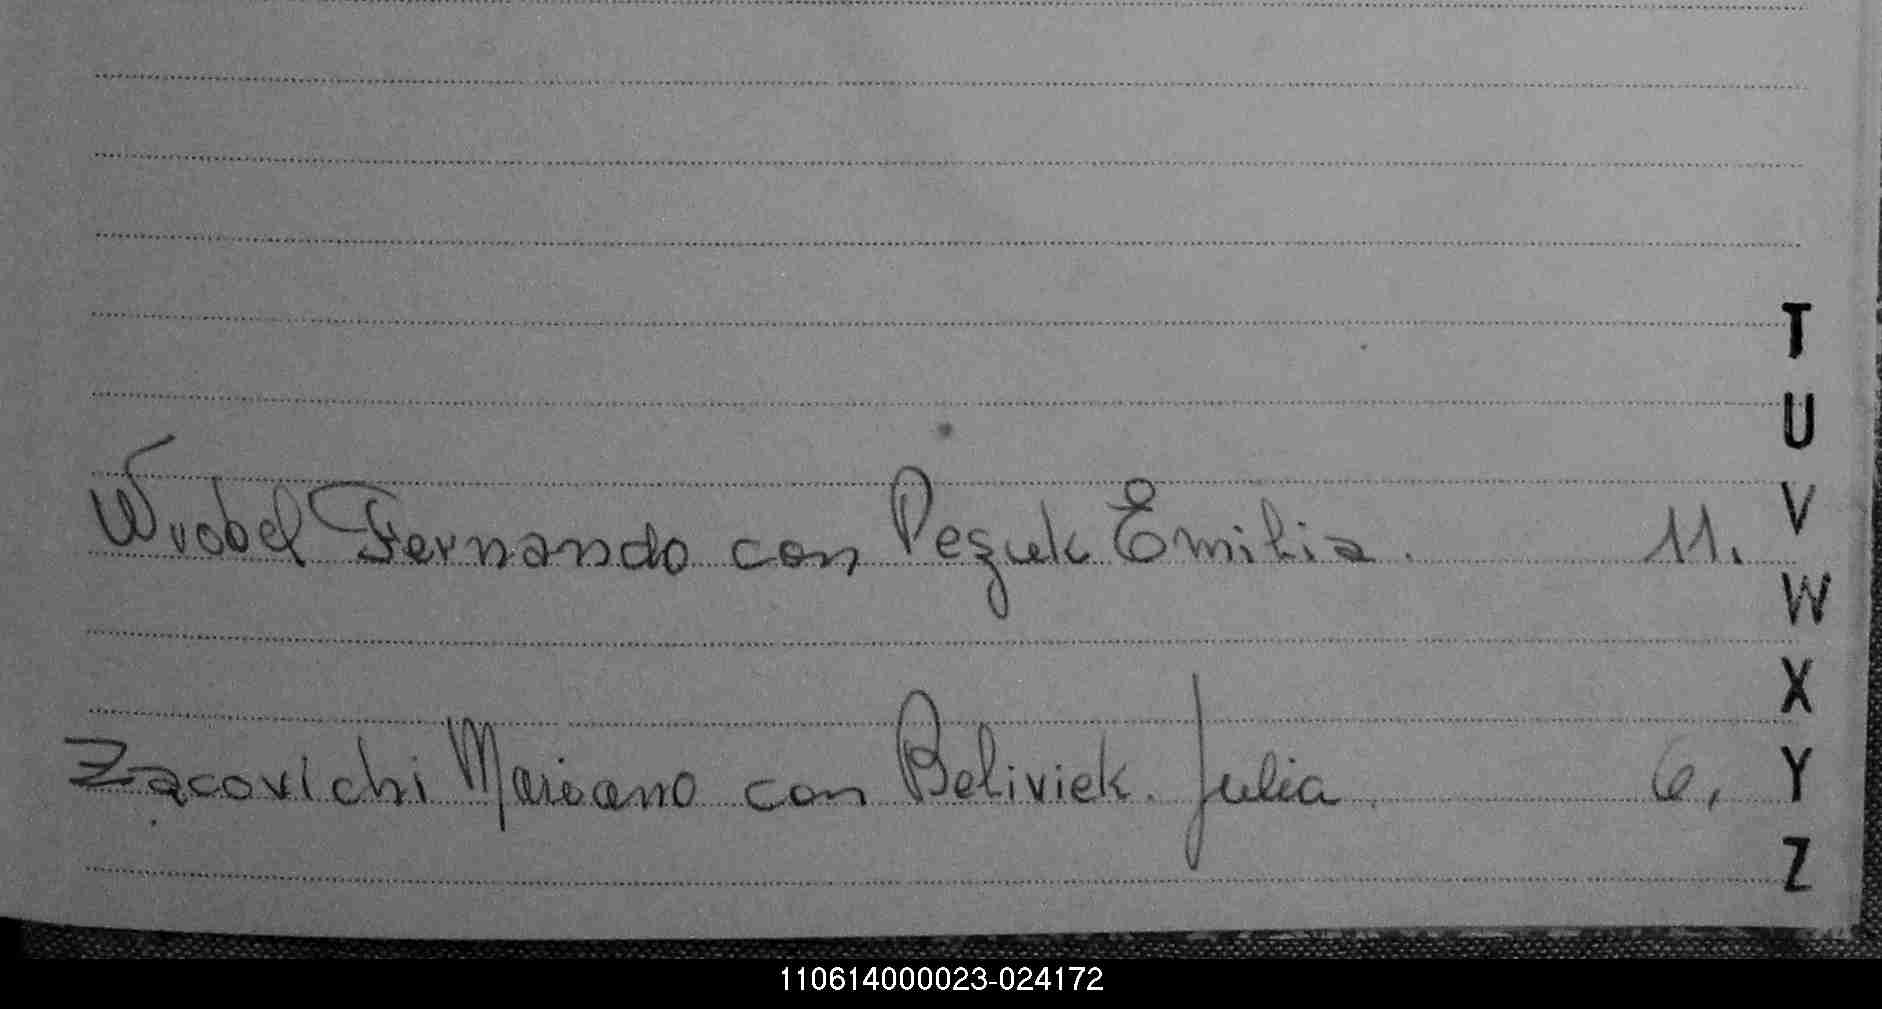 T
U
Wrobel Fernando con Pezuk Emilia. 11.
V
W
X
Zacovichi Mariano con Beliviek. Julia. 6.
Y
Z
110614000023-024172